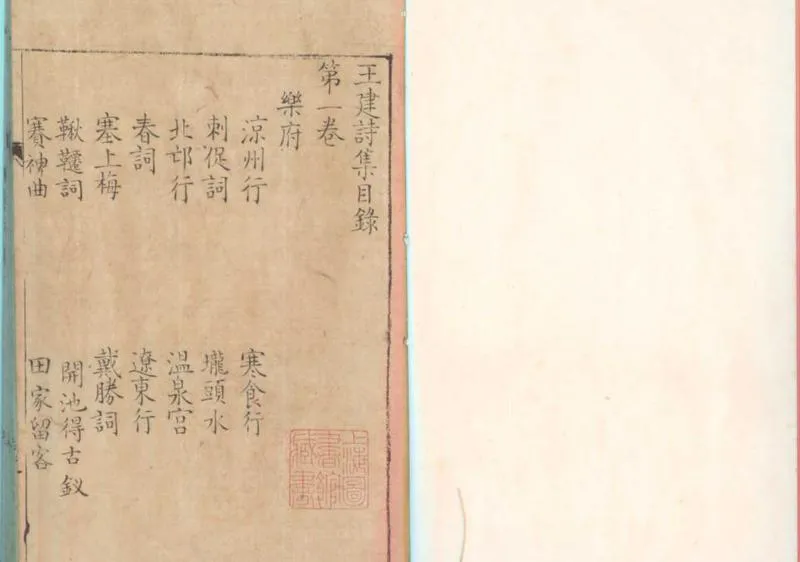 王建詩集目錄
第一卷
樂府
涼州行 寒食行
刺促詞 壠頭水
北邙行 溫泉宮
春詞 遼東行
塞上梅 戴勝詞
鞦韆詞 開池得古釵
賽神曲 田家留客
上海圖
書館
藏書